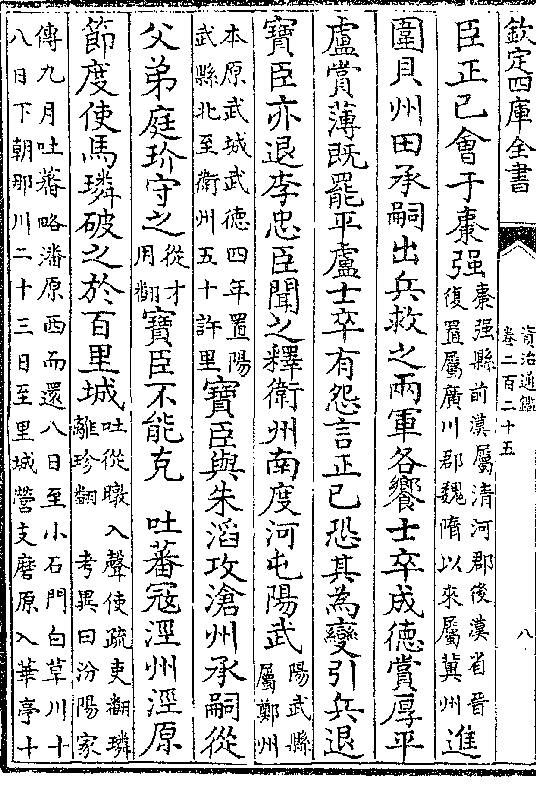 欽定四庫全書
資治通鑑
卷二百二十五
八
臣正已會于棗强棗强縣前漢屬清河郡後漢省晉
復置屬廣川郡魏隋以來屬冀州進
圍貝州田承嗣出兵救之兩軍各饗士卒成德賞厚平
盧賞薄既罷平盧士卒有怨言正已恐其為變引兵退
寶臣亦退李忠臣聞之釋衛州南度河屯陽武陽武縣
屬鄭州
本原武城武德四年置陽
武縣北至衛州五十許里寶臣與朱滔攻滄州承嗣從
父弟庭玠守之從才
用翻寶臣不能克 吐蕃寇涇州涇原
節度使馬璘破之於百里城吐從暾入聲使疏吏翻璘
離珍翻 考異曰汾陽家
傳九月吐蕃略潘原西而還八日至小石門白草川十
八日下朝那川二十三日至里城營支磨原入華亭十